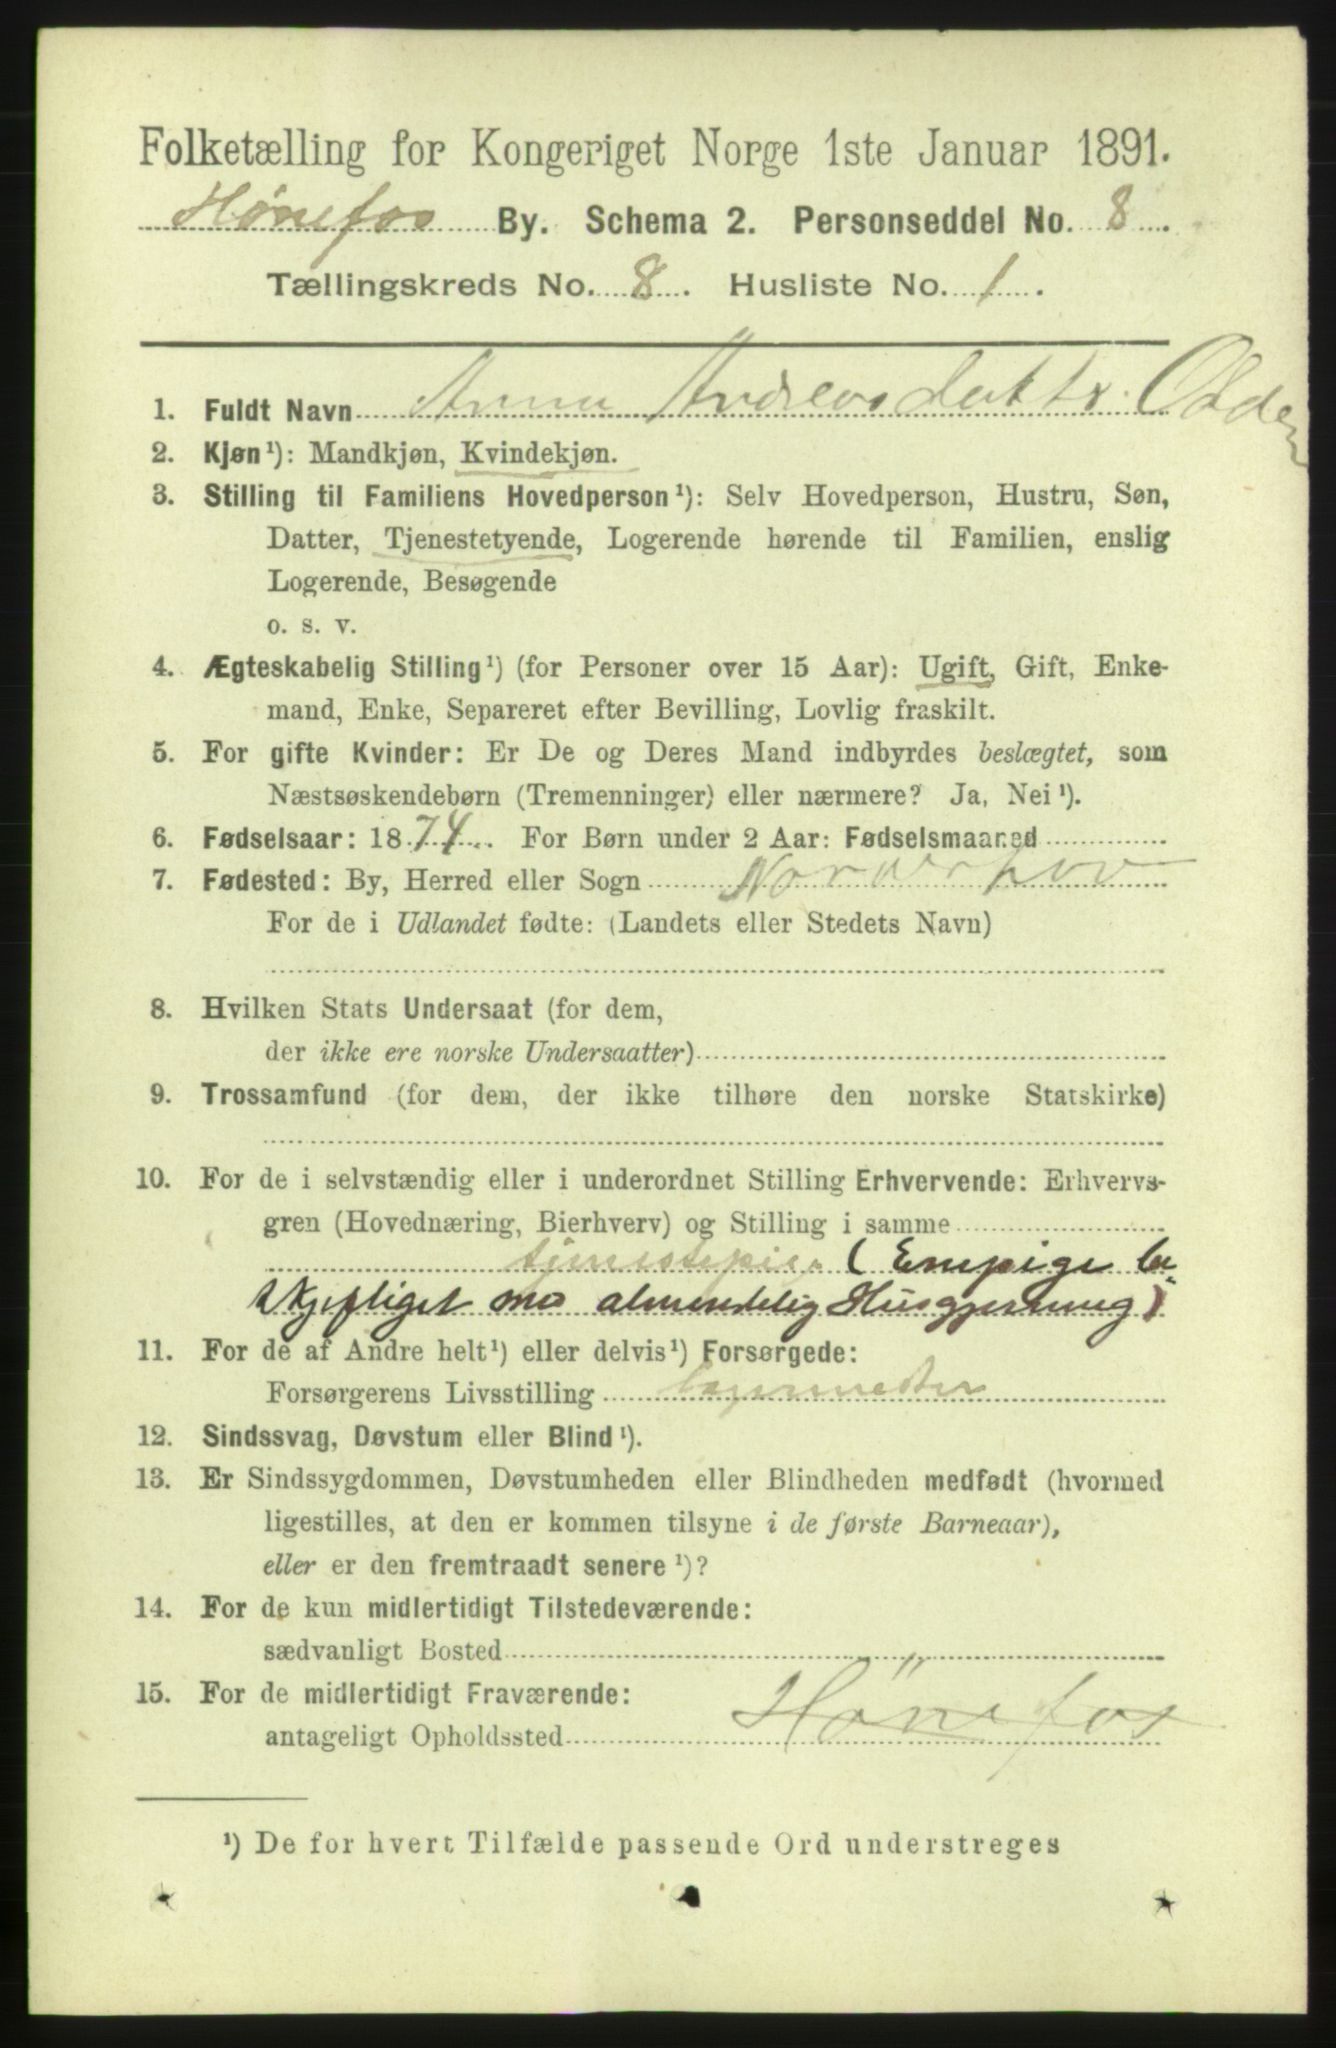 Folketælling for Kongeriget Norge 1ste Januar 1891.
Hønefos By. Schema 2. Personseddel No. 8.
Tællingskreds No. 8. Husliste No. 1.
1. Fuldt Navn Anna Andreasdatter Olden
2. Kjøn¹): Mandkjøn, Kvindekjøn.
3. Stilling til Familiens Hovedperson¹): Selv Hovedperson, Hustru, Søn,
Datter, Tjenestetyende, Logerende hørende til Familien, enslig
Logerende, Besøgende
o. s. v.
4. Ægteskabelig Stilling¹) (for Personer over 15 Aar): Ugift, Gift, Enke-
mand, Enke, Separeret efter Bevilling, Lovlig fraskilt.
5. For gifte Kvinder: Er De og Deres Mand indbyrdes beslægtet, som
Næstsøskendebørn (Tremenninger) eller nærmere? Ja, Nei¹).
6. Fødselsaar: 1874. For Børn under 2 Aar: Fødselsmaaned
7. Fødested: By, Herred eller Sogn Norderhov
For de i Udlandet fødte: (Landets eller Stedets Navn)
8. Hvilken Stats Undersaat (for dem,
der ikke ere norske Undersaatter)
9. Trossamfund (for dem, der ikke tilhøre den norske Statskirke)
10. For de i selvstændig eller i underordnet Stilling Erhvervende: Erhvervs-
gren (Hovednæring, Bierhverv) og Stilling i samme
tjenestepige (Enepige be-
skjeftiget med almendelig Husgjerning)
11. For de af Andre helt¹) eller delvis¹) Forsørgede:
Forsørgerens Livsstilling
12. Sindssvag, Døvstum eller Blind¹).
13. Er Sindssygdommen, Døvstumheden eller Blindheden medfødt (hvormed
ligestilles, at den er kommen tilsyne i de første Barneaar),
eller er den fremtraadt senere¹)?
14. For de kun midlertidigt Tilstedeværende:
sædvanligt Bosted
15. For de midlertidigt Fraværende:
antageligt Opholdssted Hönefos
¹) De for hvert Tilfælde passende Ord understreges